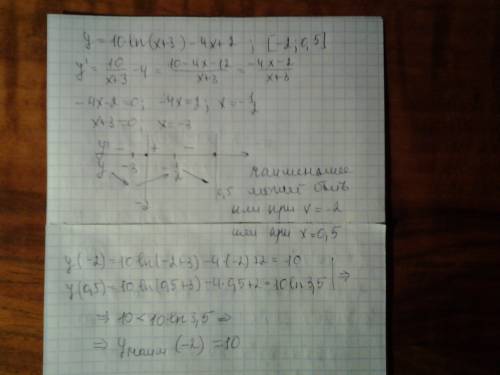 y = 10 ln(x+3) - 4x + 2 ; [-2; 0,5]
y' = 10/(x+3) - 4 = (10-4x-12)/(x+3) = (-4x-2)/(x+3)
-4x-2=0; -4x=2; x=-1/2
x+3=0 x=-3
y' - + -
y -3 -1/2
-2 0,5
наименьшее
может быть
или при x=-2
или при x=0,5
y(-2) = 10 ln(-2+3) - 4·(-2)+2 = 10
y(0,5) = 10 ln(0,5+3) - 4·0,5+2 = 10 ln 3,5 | ⇒
⇒ 10 < 10 ln 3,5 ⇒
⇒ y наим (-2) = 10